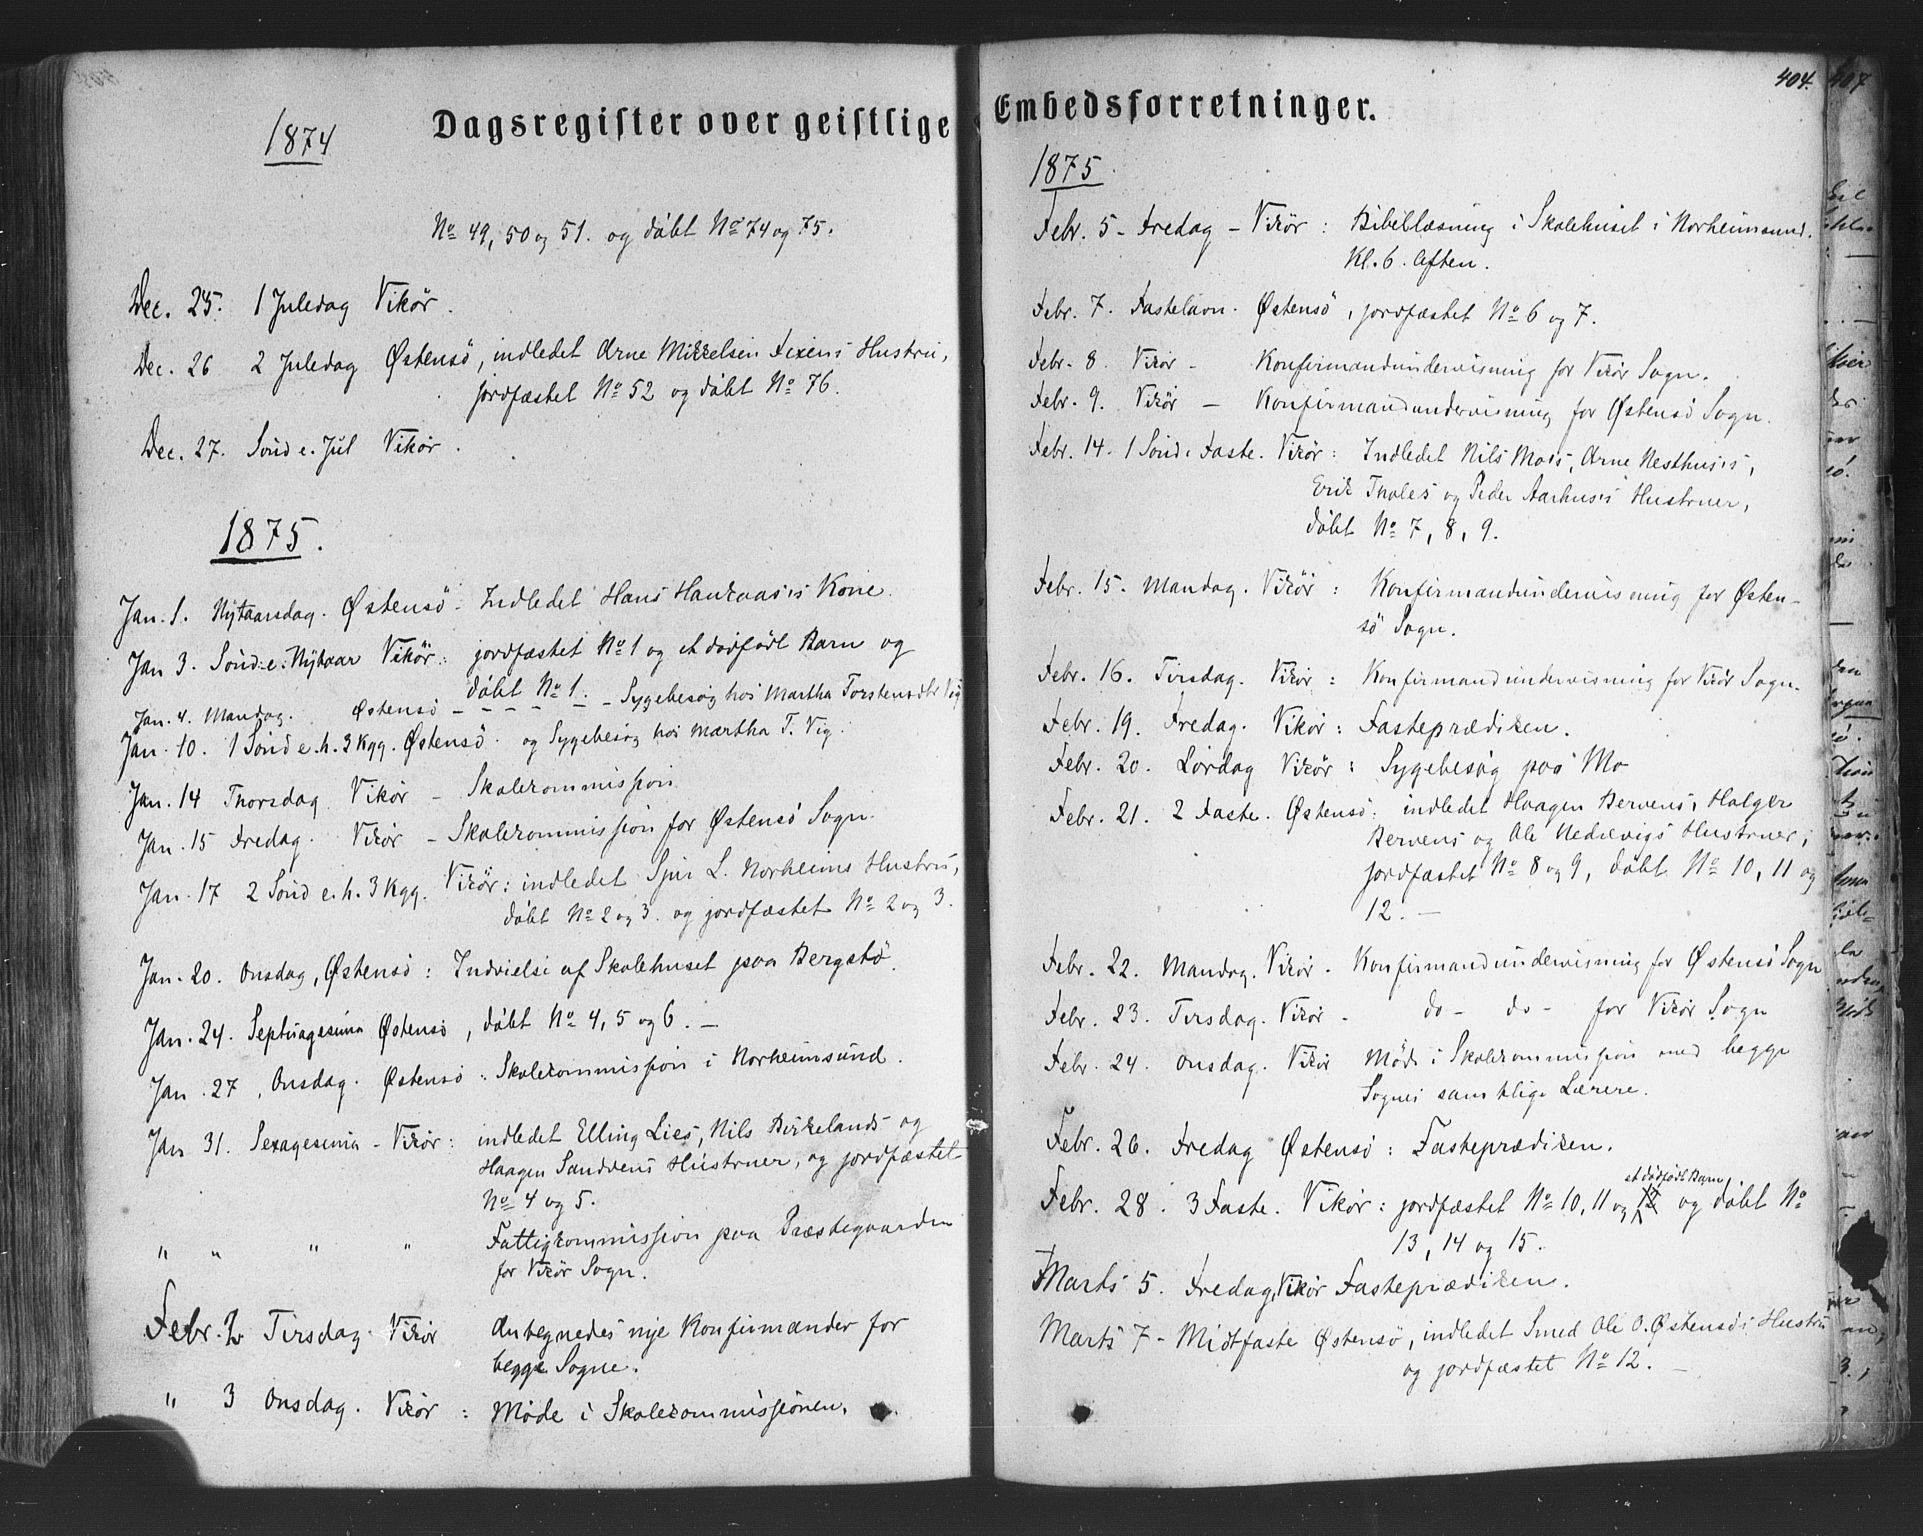 Dagsregister over geistlige Embedsforretninger.
404.
407
1874
No 49, 50 og 51. og döbt No 74 og 75.
Dec. 25. 1 Juledag Vikör.
Dec. 26 2 Juledag Østensö, indledet Arne Mikkelsen Fixens Hustru,
jordfæstet No 52 og döbt No 76.
Dec. 27. Sönd e. Jul Vikör.
1875.
Jan. 1. Nytaarsdag. Østensö. Indledet Hans Haukaas's Kone.
Jan 3. Sönd: e. Nytaar Vikör: jordfæstet No 1 og et dödfödt Barn og
döbt No 1.
Jan. 4. Mandag. Østensö - - - - - - Sygebesög hos Martha Torstensdtr Vig
Jan. 10. 1 Sönd e. h. 3 Kgg. Østensö. og Sygebesög hos Martha T. Vig.
Jan. 14 Thorsdag Vikör - Skolekommission
Jan. 15 Fredag. Vikör - Skolekommission for Østensö Sogn.
Jan. 17 2 Sönd e. h. 3 Kgg. Vikör: indledet Sjur L. Norheims Hustru,
döbt No 2 og 3. og jordfæstet No 2 og 3.
Jan. 20. Onsdag, Østensö: Indvielse af Skolehuset paa Bergstö.
Jan. 24. Septuagesima Østensö, döbt No 4, 5 og 6. -
Jan. 27, Onsdag. Østensö: Skolekommission i Norheimsund.
Jan 31. Sexagesima - Vikör: indledet Elling Lies, Nils Birkelands og
Haagen Sandvens Hustruer, og jordfæstet
No 4 og 5.
" " " " Fattigkommission paa Præstegaarden
for Vikör Sogn.
Febr. 2 Tirsdag. Vikör Antegnedes nye Konfirmander for
begge Sogne.
" 3 Onsdag. Vikör: Möde i Skolekommissionen.
1875.
Febr. 5 - Fredag - Vikör: Bibellæsning i Skolehuset i Norheimsund.
Kl. 6. Aften.
Febr. 7. Fastelavn. Østensö, jordfæstet No 6 og 7.
Febr. 8 Vikör - Konfirmandundervisning for Vikör Sogn.
Febr. 9. Vikör - Konfirmandundervisning for Østensö Sogn.
Febr. 14. 1 Sönd i Faste. Vikör: Indledet Nils Moes, Arne Nesthus's,
Erik Tholes og Peder Aarhus's Hustruer,
döbt No 7, 8, 9.
Febr. 15. Mandag. Vikör: Konfirmandundervisning for Østen-
sö Sogn.
Febr. 16. Tirsdag. Vikör: Konfirmandundervisning for Vikör Sogn.
Febr. 19. Fredag. Vikör: Fasteprædiken.
Febr. 20. Lördag Vikör: Sygebesög paa Mo
Febr. 21. 2 Faste. Østensö: indledet Haagen Bervens, Holger
Bervens og Ole Nedrevigs Hustruer,
jordfæstet No 8 og 9, döbt No 10, 11 og
12. -
Febr. 22. Mandag. Vikör. Konfirmandundervisning for Østensö Sogn
Febr. 23. Tirsdag. Vikör - do - do - for Vikör Sogn
Febr. 24. Onsdag. Vikör Möde i Skolekommission med begge
Sognes samtlige Lærere.
Febr. 26. Fredag Østensö: Fasteprædiken.
et dödfödt Barn
Febr. 28. 3 Faste. Vikör: jordfæstet No 10, 11 og 12 og döbt No
13, 14 og 15.
Marts 5. Fredag, Vikör Fasteprædiken.
Marts 7 - Midtfaste Østensö, indledet Smed Ole O. Østensö's Hustru
og jordfæstet No 12. -